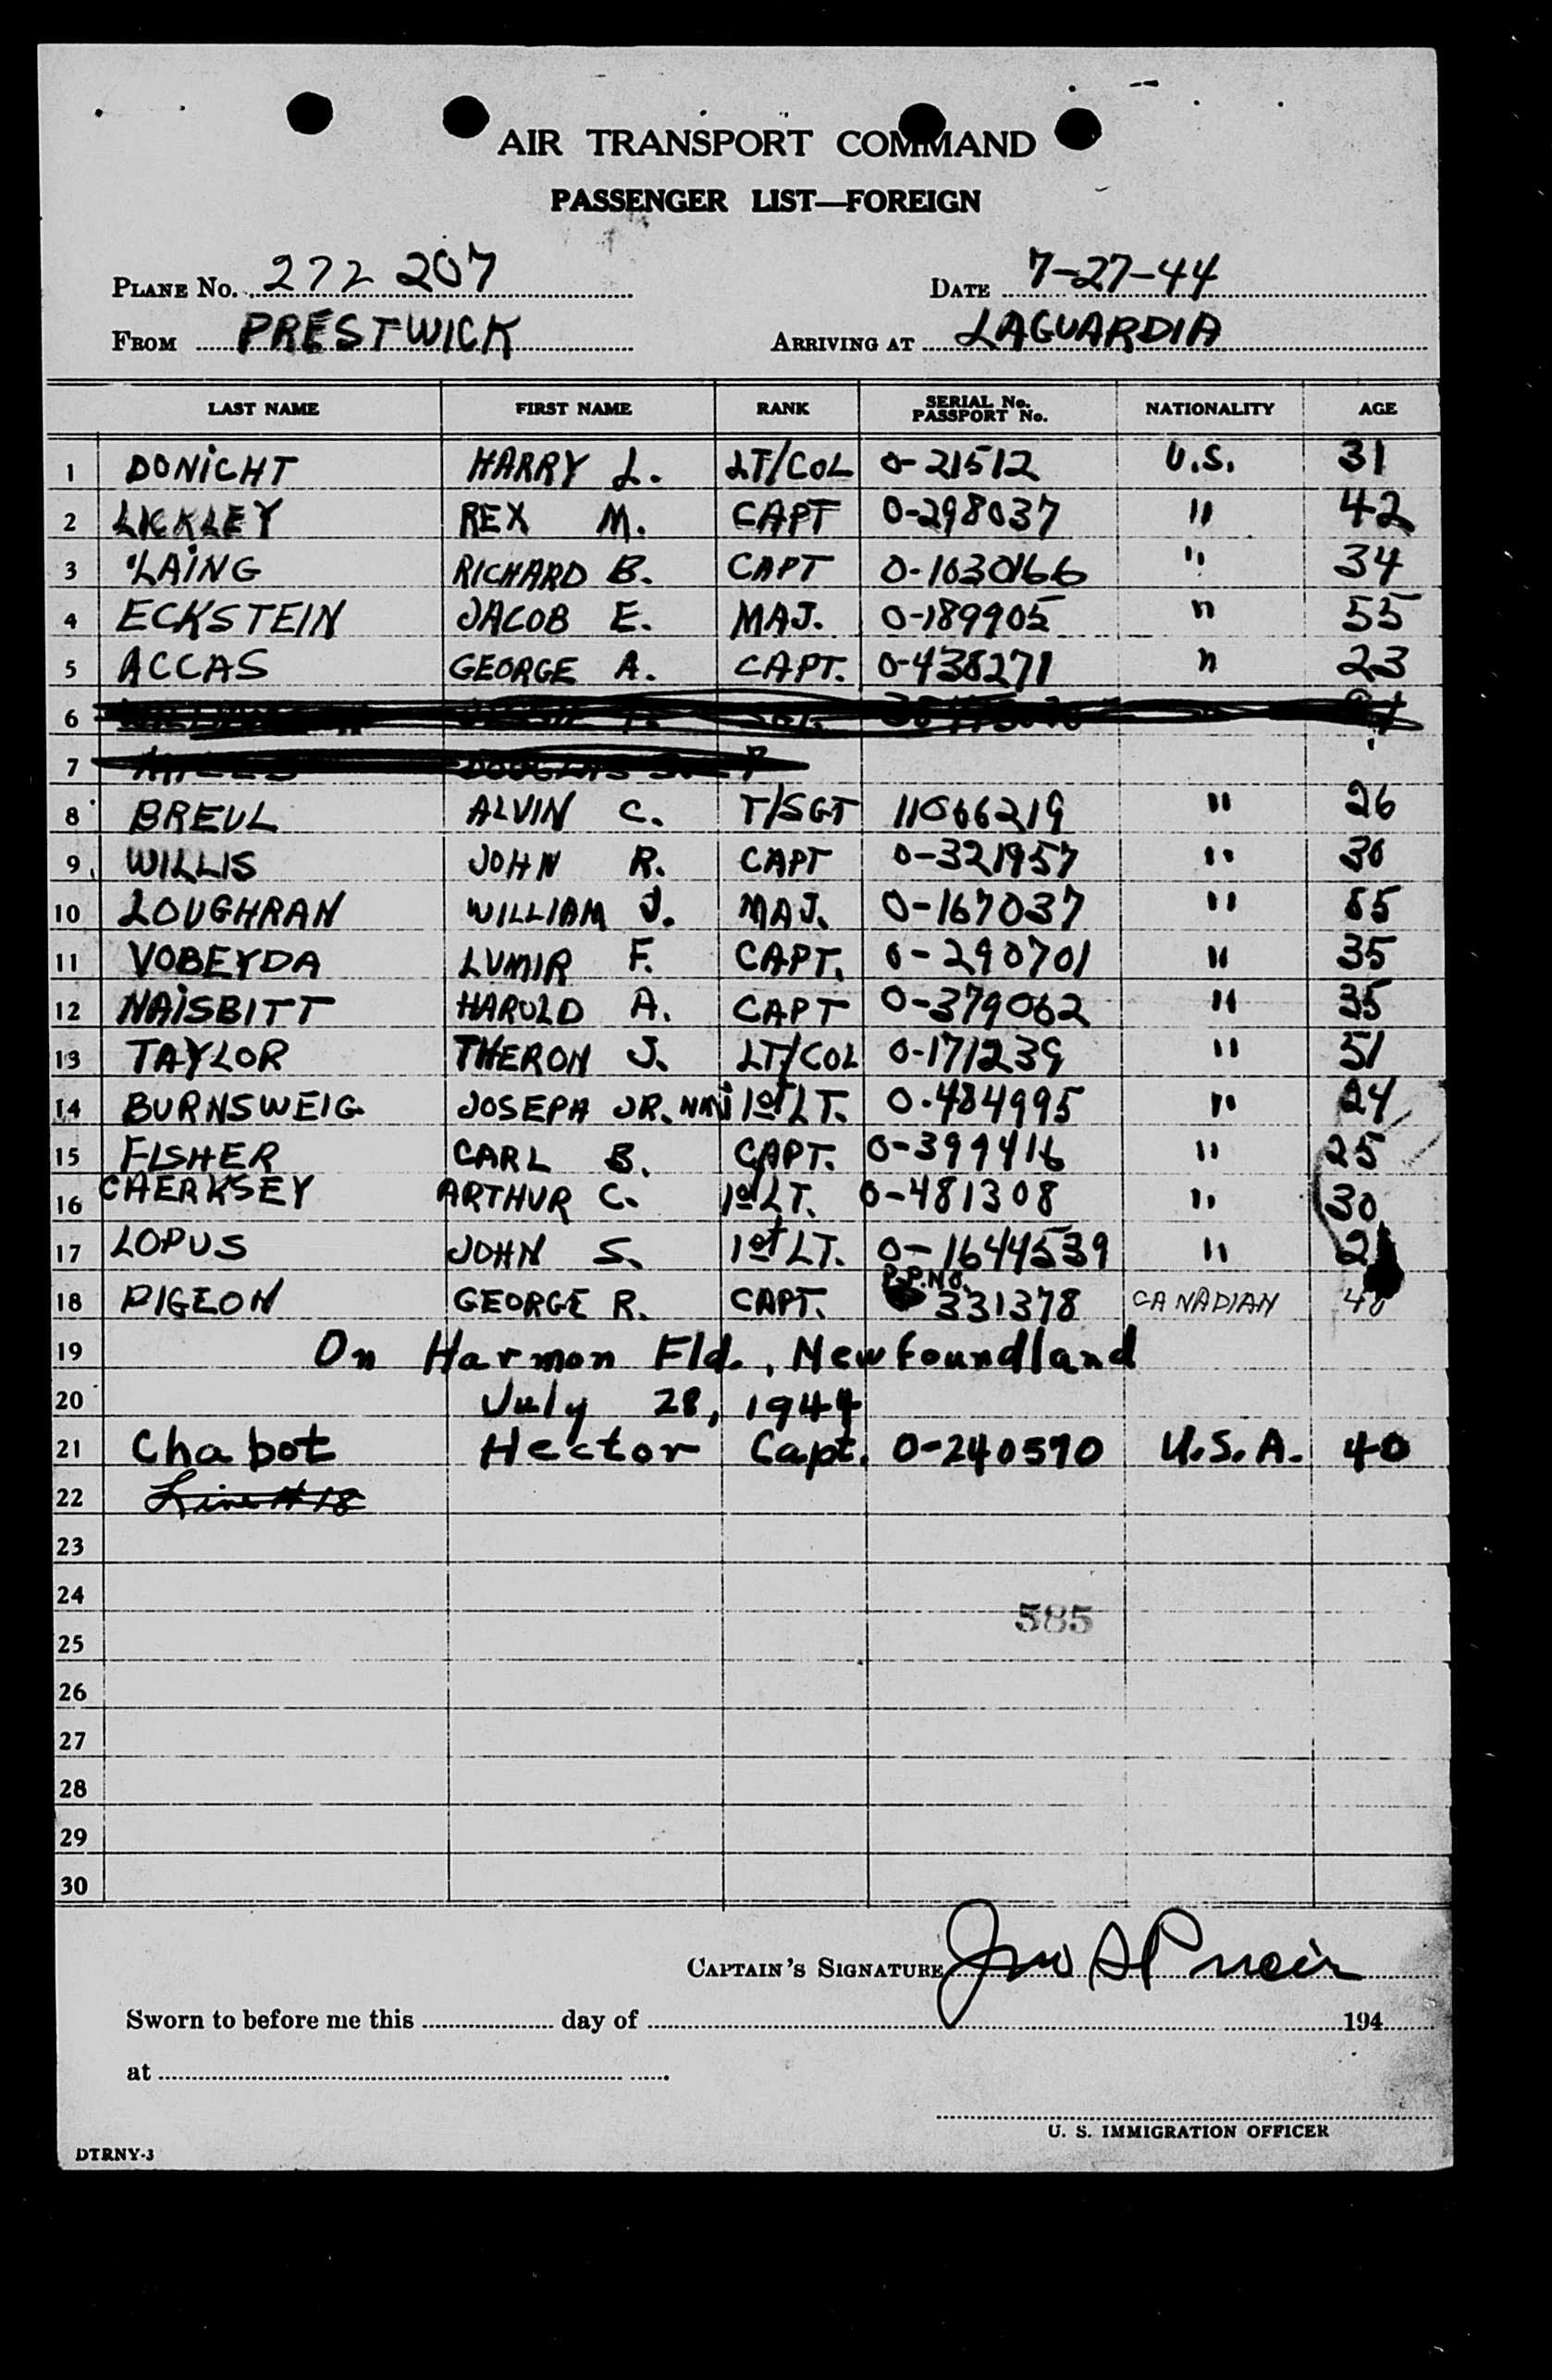 AIR TRANSPORT COMMAND
PASSENGER LIST—FOREIGN
PLANE No. 272 207 DATE 7-27-44
FROM PRESTWICK ARRIVING AT LAGUARDIA
LAST NAME FIRST NAME RANK SERIAL No. PASSPORT No. NATIONALITY AGE
1 DONICHT HARRY L. LT/COL 0-21512 U.S. 31
2 LICKLEY REX M. CAPT 0-298037 " 42
3 LAING RICHARD B. CAPT 0-1030166 " 34
4 ECKSTEIN JACOB E. MAJ. 0-189905 " 55
5 ACCAS GEORGE A. CAPT. 0-438271 " 23
6
7
8 BREUL ALVIN C. T/SGT 11066219 " 26
9 WILLIS JOHN R. CAPT 0-321957 " 30
10 LOUGHRAN WILLIAM J. MAJ. 0-167037 " 55
11 VOBEYDA LUMIR F. CAPT. 0-290701 " 35
12 NAISBITT HAROLD A. CAPT 0-379062 " 35
13 TAYLOR THERON J. LT/COL 0-171239 " 51
14 BURNSWEIG JOSEPH JR. NMI 1st LT. 0-484995 " 24
15 FISHER CARL B. CAPT. 0-399416 " 25
16 CHERKSEY ARTHUR C. 1st LT. 0-481308 " 30
17 LOPUS JOHN S. 1st LT. 0-1644539 "
18 PIGEON GEORGE R. CAPT. P.P.No. 331378 CANADIAN 40
19 On Harmon Fld., Newfoundland
20 July 28, 1944
21 Chabot Hector Capt. 0-240590 U.S.A. 40
22 Line # 18
23
24
585
25
26
27
28
29
30
CAPTAIN'S SIGNATURE
Sworn to before me this day of 194
at
U. S. IMMIGRATION OFFICER
DTRNY-3